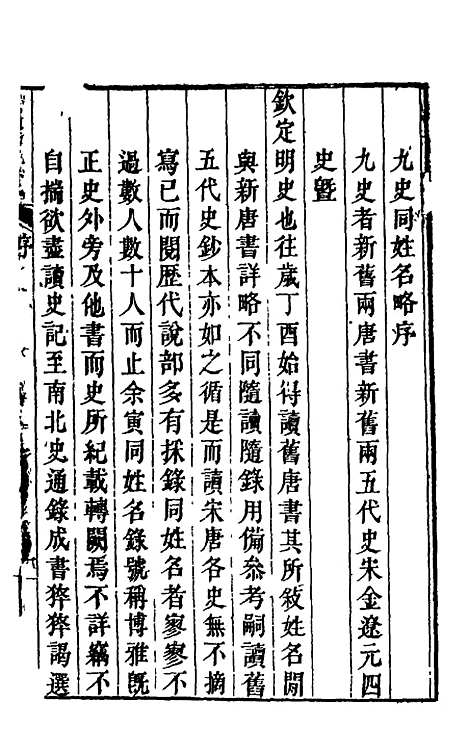 九史同姓名略序
九史者新舊兩唐書新舊兩五代史宋金遼元四
史曁
欽定明史也往歲丁酉始得讀舊唐書其所敍姓名閒
與新唐書詳略不同隨讀隨錄用備叅考嗣讀舊
五代史鈔本亦如之循是而讀宋唐各史無不摘
寫已而閱歷代說部多有採錄同姓名者寥寥不
過數人數十人而止余寅同姓名錄號稱博雅旣
正史外旁及他書而史所紀載轉闕焉不詳竊不
自揣欲盡讀史記至南北史通錄成書猝猝謁選
序